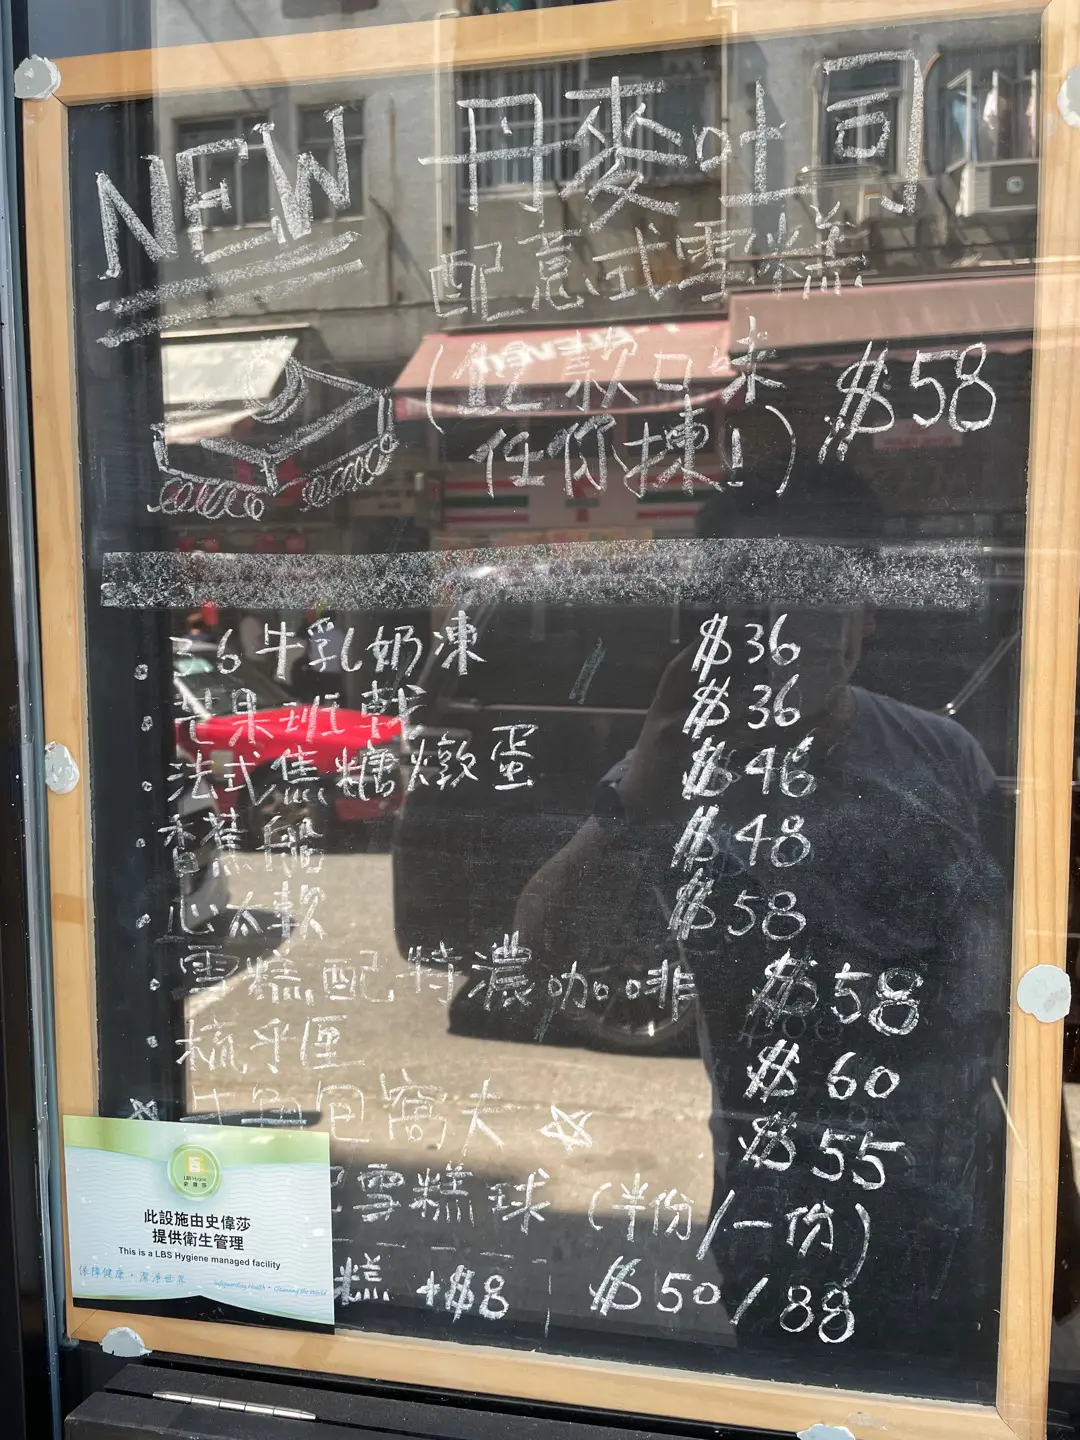 NEW
丹麥吐司
配意式雪糕
(12款口味
任你揀!) $58
3.6牛乳奶凍 $36
芒果班戟 $36
法式焦糖燉蛋 $46
香蕉船 $48
心太軟 $58
雪糕配特濃咖啡 $58
梳乎厘 $60
牛角包窩夫 $55
配雪糕球 (半份/一份)
糕 +$8 $50/88
LBS Hygiene
史偉莎
此設施由史偉莎
提供衛生管理
This is a LBS Hygiene managed facility
保障健康・潔淨世界
Safeguarding Health・Cleansing the World